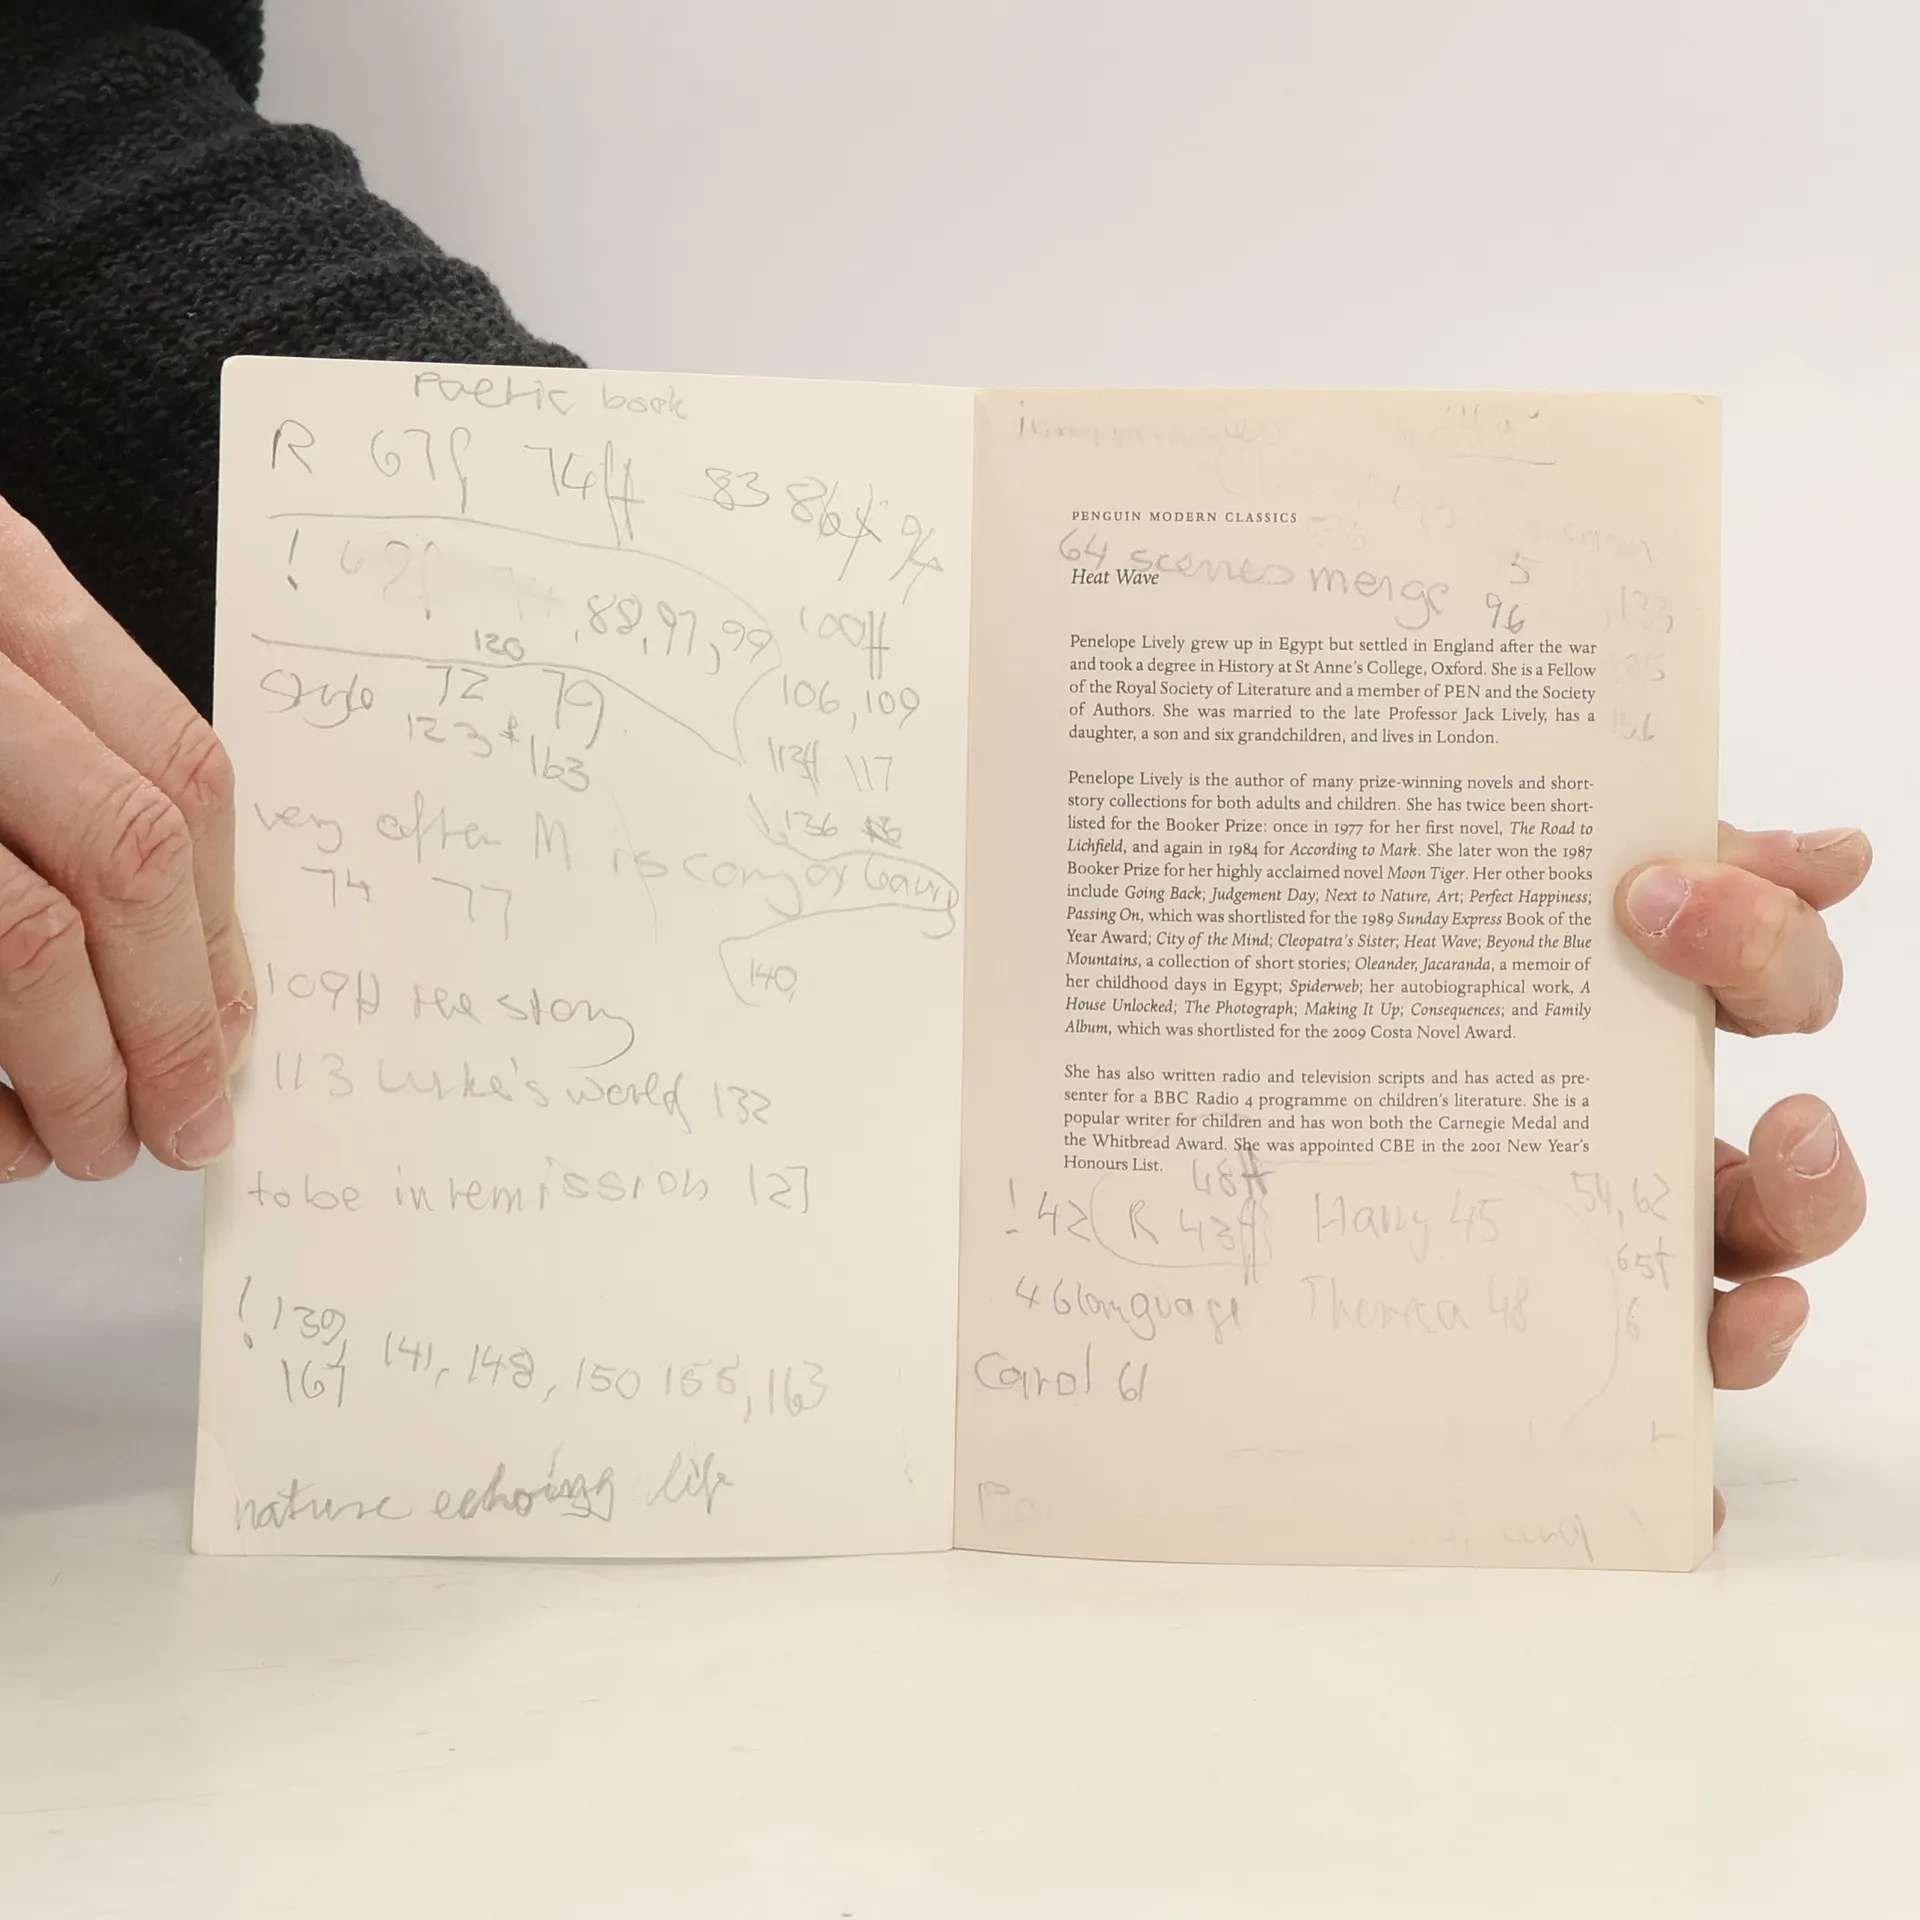 Poetic book
R 67f 74ff 83
!
88, 97, 99 100ff
120
style 72 79
106, 109
123 163
117
136
very after M is
74 77
140,
109ff the story
113 Luke's world 132
to be in remission 127
! 139, 141, 148, 150 158, 163
167
nature echoing life
PENGUIN MODERN CLASSICS
64 scenes merge 5
96
Heat Wave
133
135
Penelope Lively grew up in Egypt but settled in England after the war
and took a degree in History at St Anne's College, Oxford. She is a Fellow
of the Royal Society of Literature and a member of PEN and the Society
of Authors. She was married to the late Professor Jack Lively, has a
daughter, a son and six grandchildren, and lives in London.
Penelope Lively is the author of many prize-winning novels and short-
story collections for both adults and children. She has twice been short-
listed for the Booker Prize: once in 1977 for her first novel, The Road to
Lichfield, and again in 1984 for According to Mark. She later won the 1987
Booker Prize for her highly acclaimed novel Moon Tiger. Her other books
include Going Back; Judgement Day; Next to Nature, Art; Perfect Happiness;
Passing On, which was shortlisted for the 1989 Sunday Express Book of the
Year Award; City of the Mind; Cleopatra's Sister; Heat Wave; Beyond the Blue
Mountains, a collection of short stories; Oleander, Jacaranda, a memoir of
her childhood days in Egypt; Spiderweb; her autobiographical work, A
House Unlocked; The Photograph; Making It Up; Consequences; and Family
Album, which was shortlisted for the 2009 Costa Novel Award.
She has also written radio and television scripts and has acted as pre-
senter for a BBC Radio 4 programme on children's literature. She is a
popular writer for children and has won both the Carnegie Medal and
the Whitbread Award. She was appointed CBE in the 2001 New Year's
Honours List.
48ff 54, 62
! 42 R 43ff Harry 45
65f
46 language Theresa 48 6
Carol 61